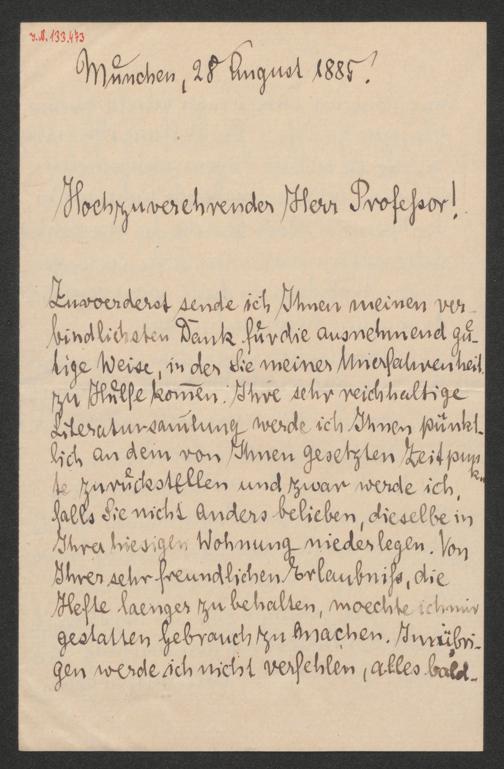 J.N. 133.473
München, 28 August 1885.
Hochzuverehrender Herr Professor!
Zuvoerderst sende ich Ihnen meinen ver-
bindlichsten Dank für die ausnehmend gü-
tige Weise, in der Sie meiner Unerfahrenheit
zu Hülfe kom̄en. Ihre sehr reichhaltige
Literatursam̄lung werde ich Ihnen pünkt-
lich an dem von Ihnen gesetzten Zeitpunk
te zurückstellen und zwar werde ich,
falls Sie nicht anders belieben, dieselbe in
Ihrer hiesigen Wohnung niederlegen. Von
Ihrer sehr freundlichen Erlaubniß, die
Hefte laenger zu behalten, moechte ich mir
gestatten Gebrauch zu machen. Im übri-
gen werde ich nicht verfehlen, alles bald-